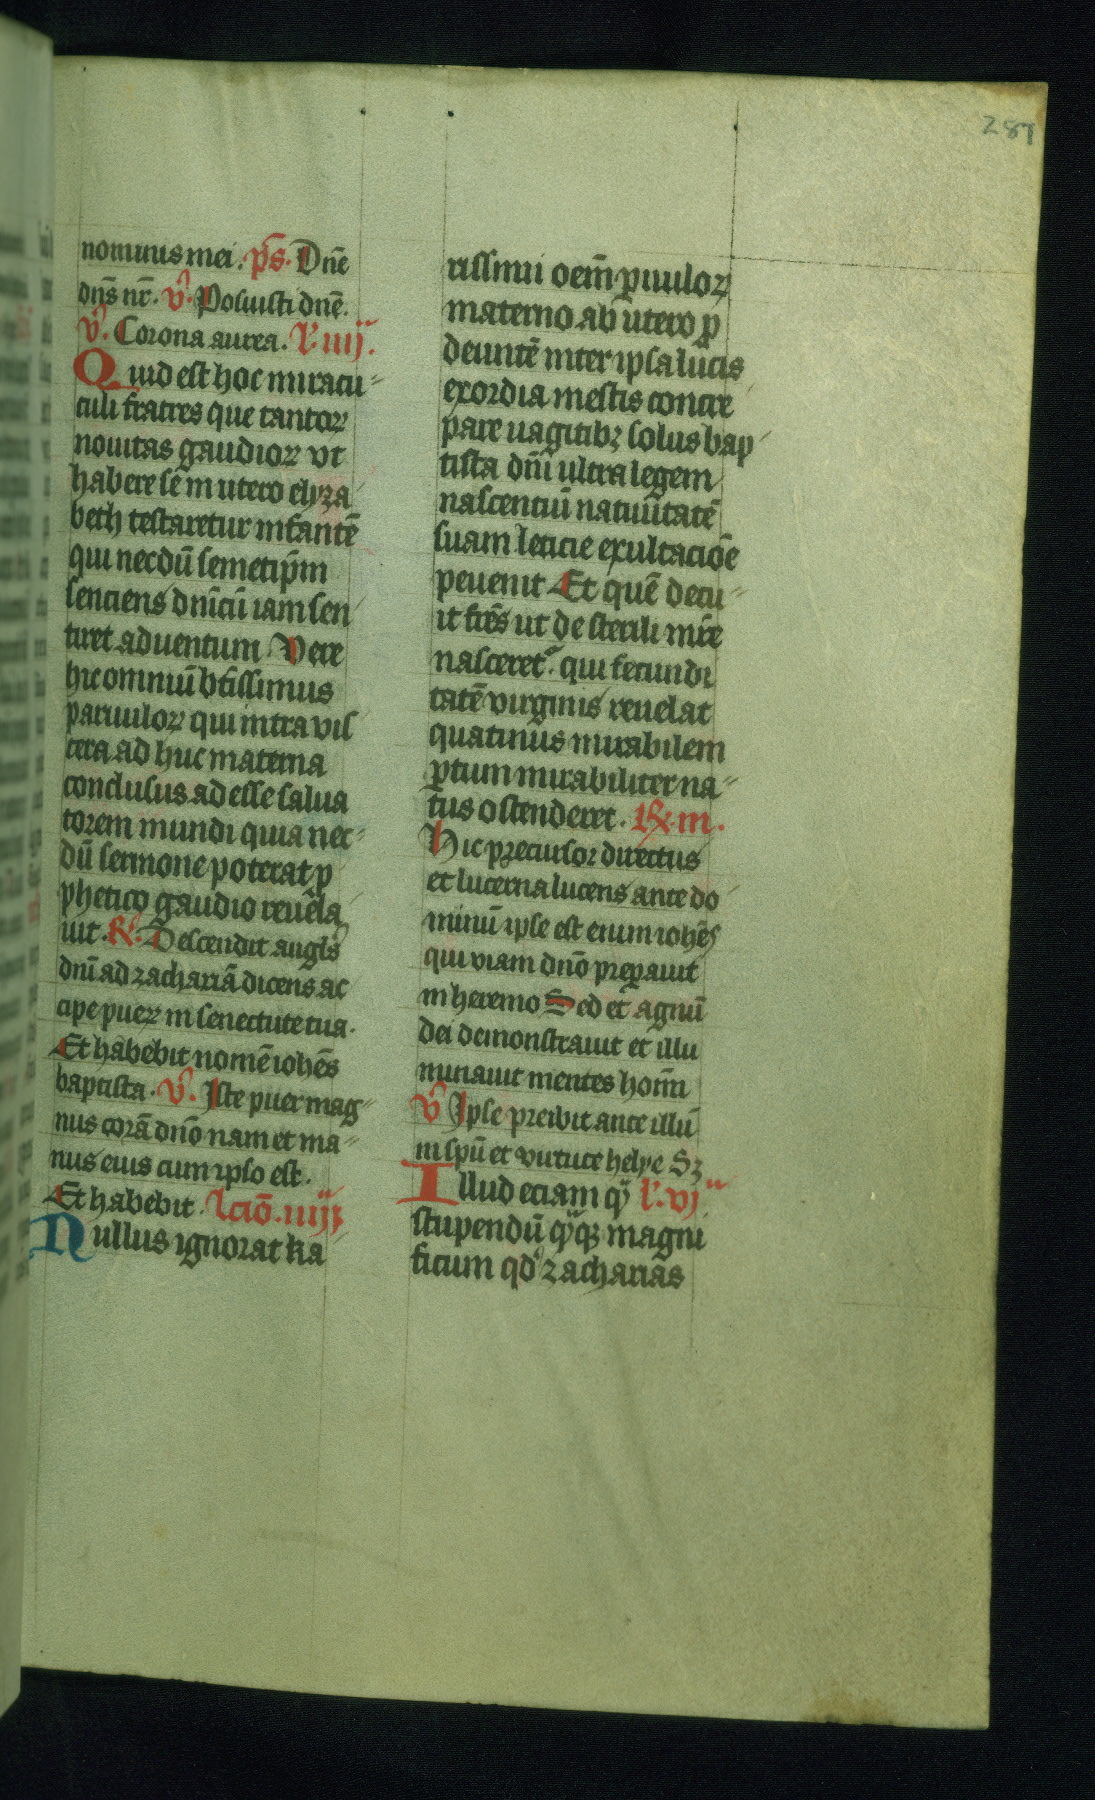 281
nominis mei. ps. Dnē
dns̄ nr̄. v̄. Posuisti dnē.
v̄. Corona aurea. l'. iiij.
Quid est hoc miracu
culi fratres que tantoꝝ
nouitas gaudioꝝ vt
habere sē in utero elyza
beth testaretur infantē
qui necdū semetip̄m
senciens dnīcū iam sen
tiret aduentum Vere
hic omniū btīssimus
paruuloꝝ qui intra vis
cera ad huc materna
conclusus ad esse salua
torem mundi quia nec
dū sermone poterat ꝓ
phetico gaudio reuela
uit. R̸. Descendit angls̄
dnī ad zachariā dicens ac
cipe pueꝝ in senectute tua.
Et habebit nomē iohēs
baptista. v̄. Iste puer mag
nus corā dnō nam et ma
nus eius cum ipso est.
Et habebit. lcīo. iiij
Nullus ignorat ka
rissimi oēm ꝑuuloꝝ
materno ab utero ꝓ
deuntē inter ipsa lucis
exordia mestis concre
pare uagitibꝫ solus bap
tista dnī ultra legem
nascentiū natiuitatē
suam leticie exultaciōe
peuenit Et quē decu
it frēs ut de sterili mrē
nasceret᷑ qui fecundi
tatē virginis reuelat
quatinus mirabilem
ꝑtum mirabiliter na
tus ostenderet. R̸. m.
Hic precursor directus
et lucerna lucens ante do
minū ipse est enim iohēs
qui viam dnō preꝑauit
in heremo Sed et agnū
dei demonstrauit et illu
minauit mentes hoīm
v̄ Ipse preibit ante illū
in spū et virtute helye Sꝫ
Illud eciam l'. vj
stupendū magni
ficum qd zacharias